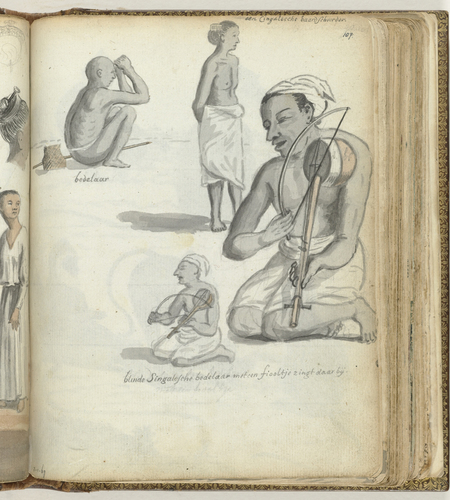 een Cingaleesche
107
bedelaar
blinde Singaleesche bedelaar met een fiooltje zingt daar bij